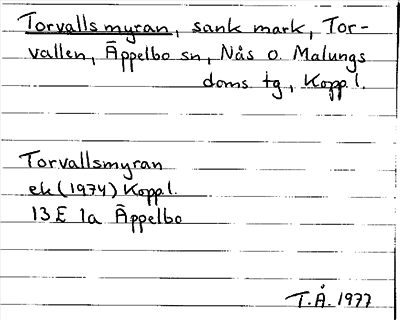 Torvallsmyran, sank mark, Tor-
vallen, Äppelbo sn, Nås o. Malungs
doms tg, Kopp. l.
Torvallsmyran
ek (1974) Kopp. l.
13 E 1a Äppelbo
T.Å. 1977